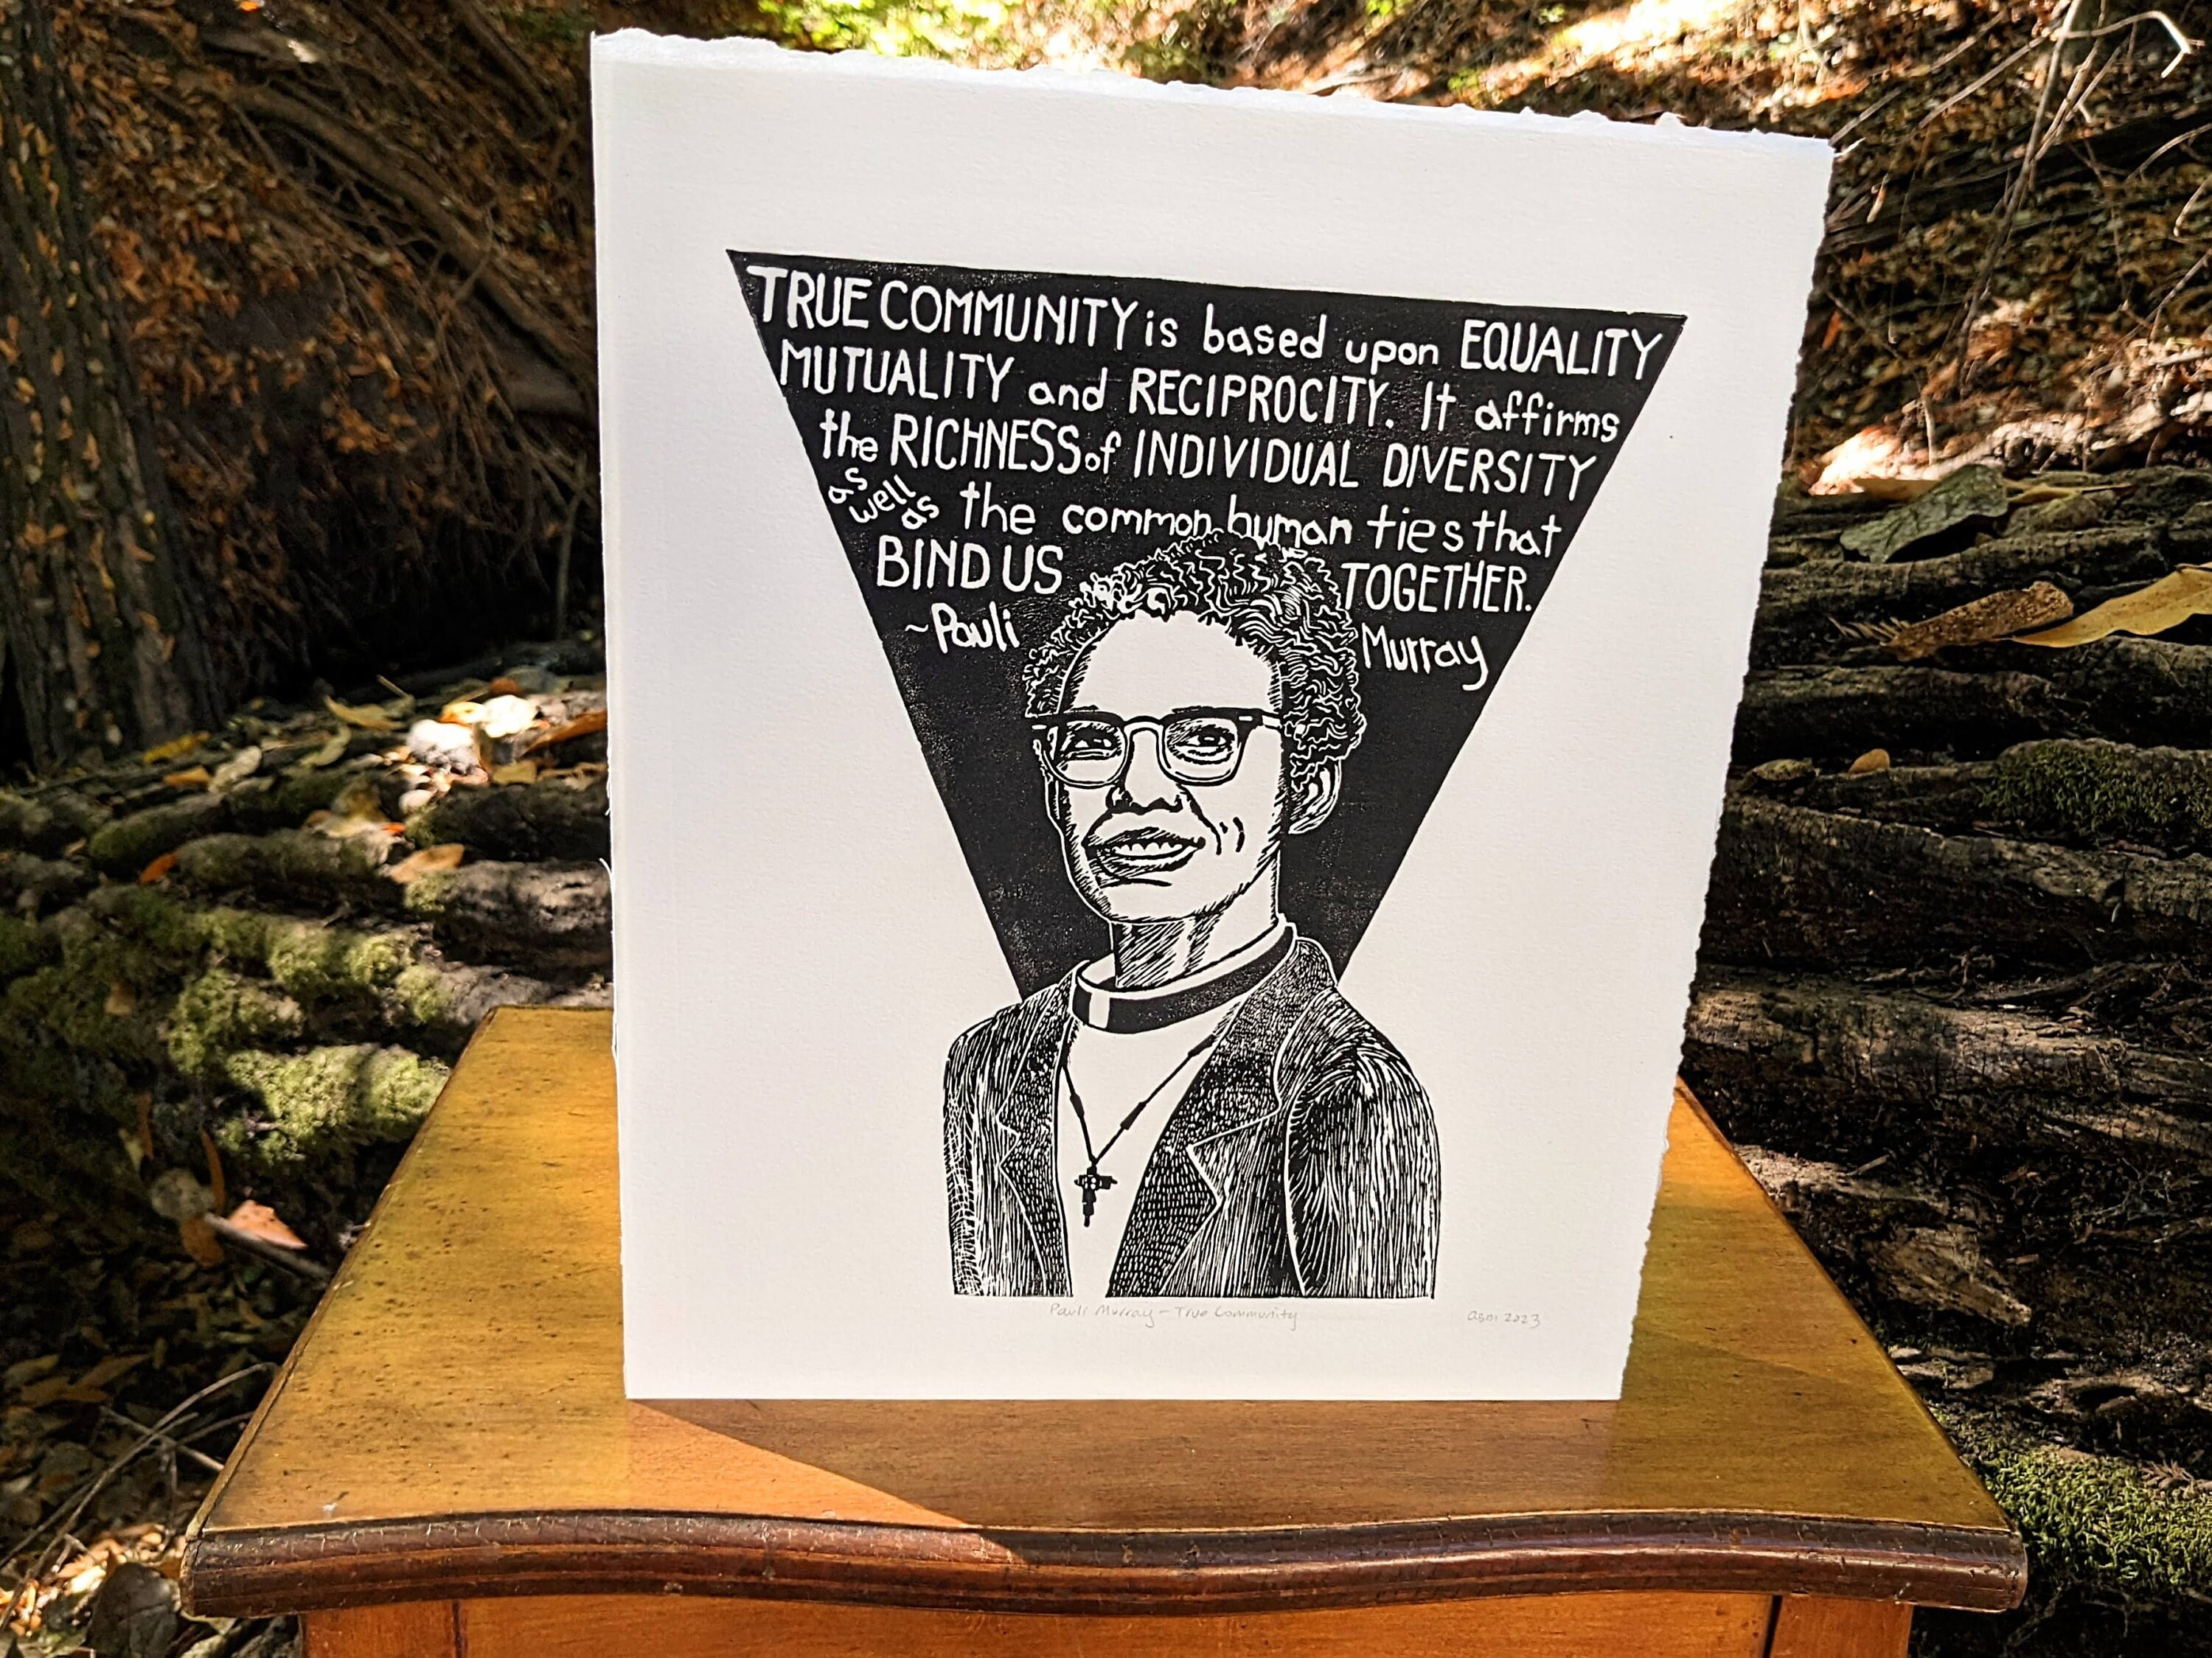 TRUE COMMUNITY is based upon EQUALITY
MUTUALITY and RECIPROCITY. It affirms
the RICHNESS of INDIVIDUAL DIVERSITY
as well as the common human ties that
BIND US TOGETHER.
~Pauli Murray
Pauli Murray - True Community
asm 2023